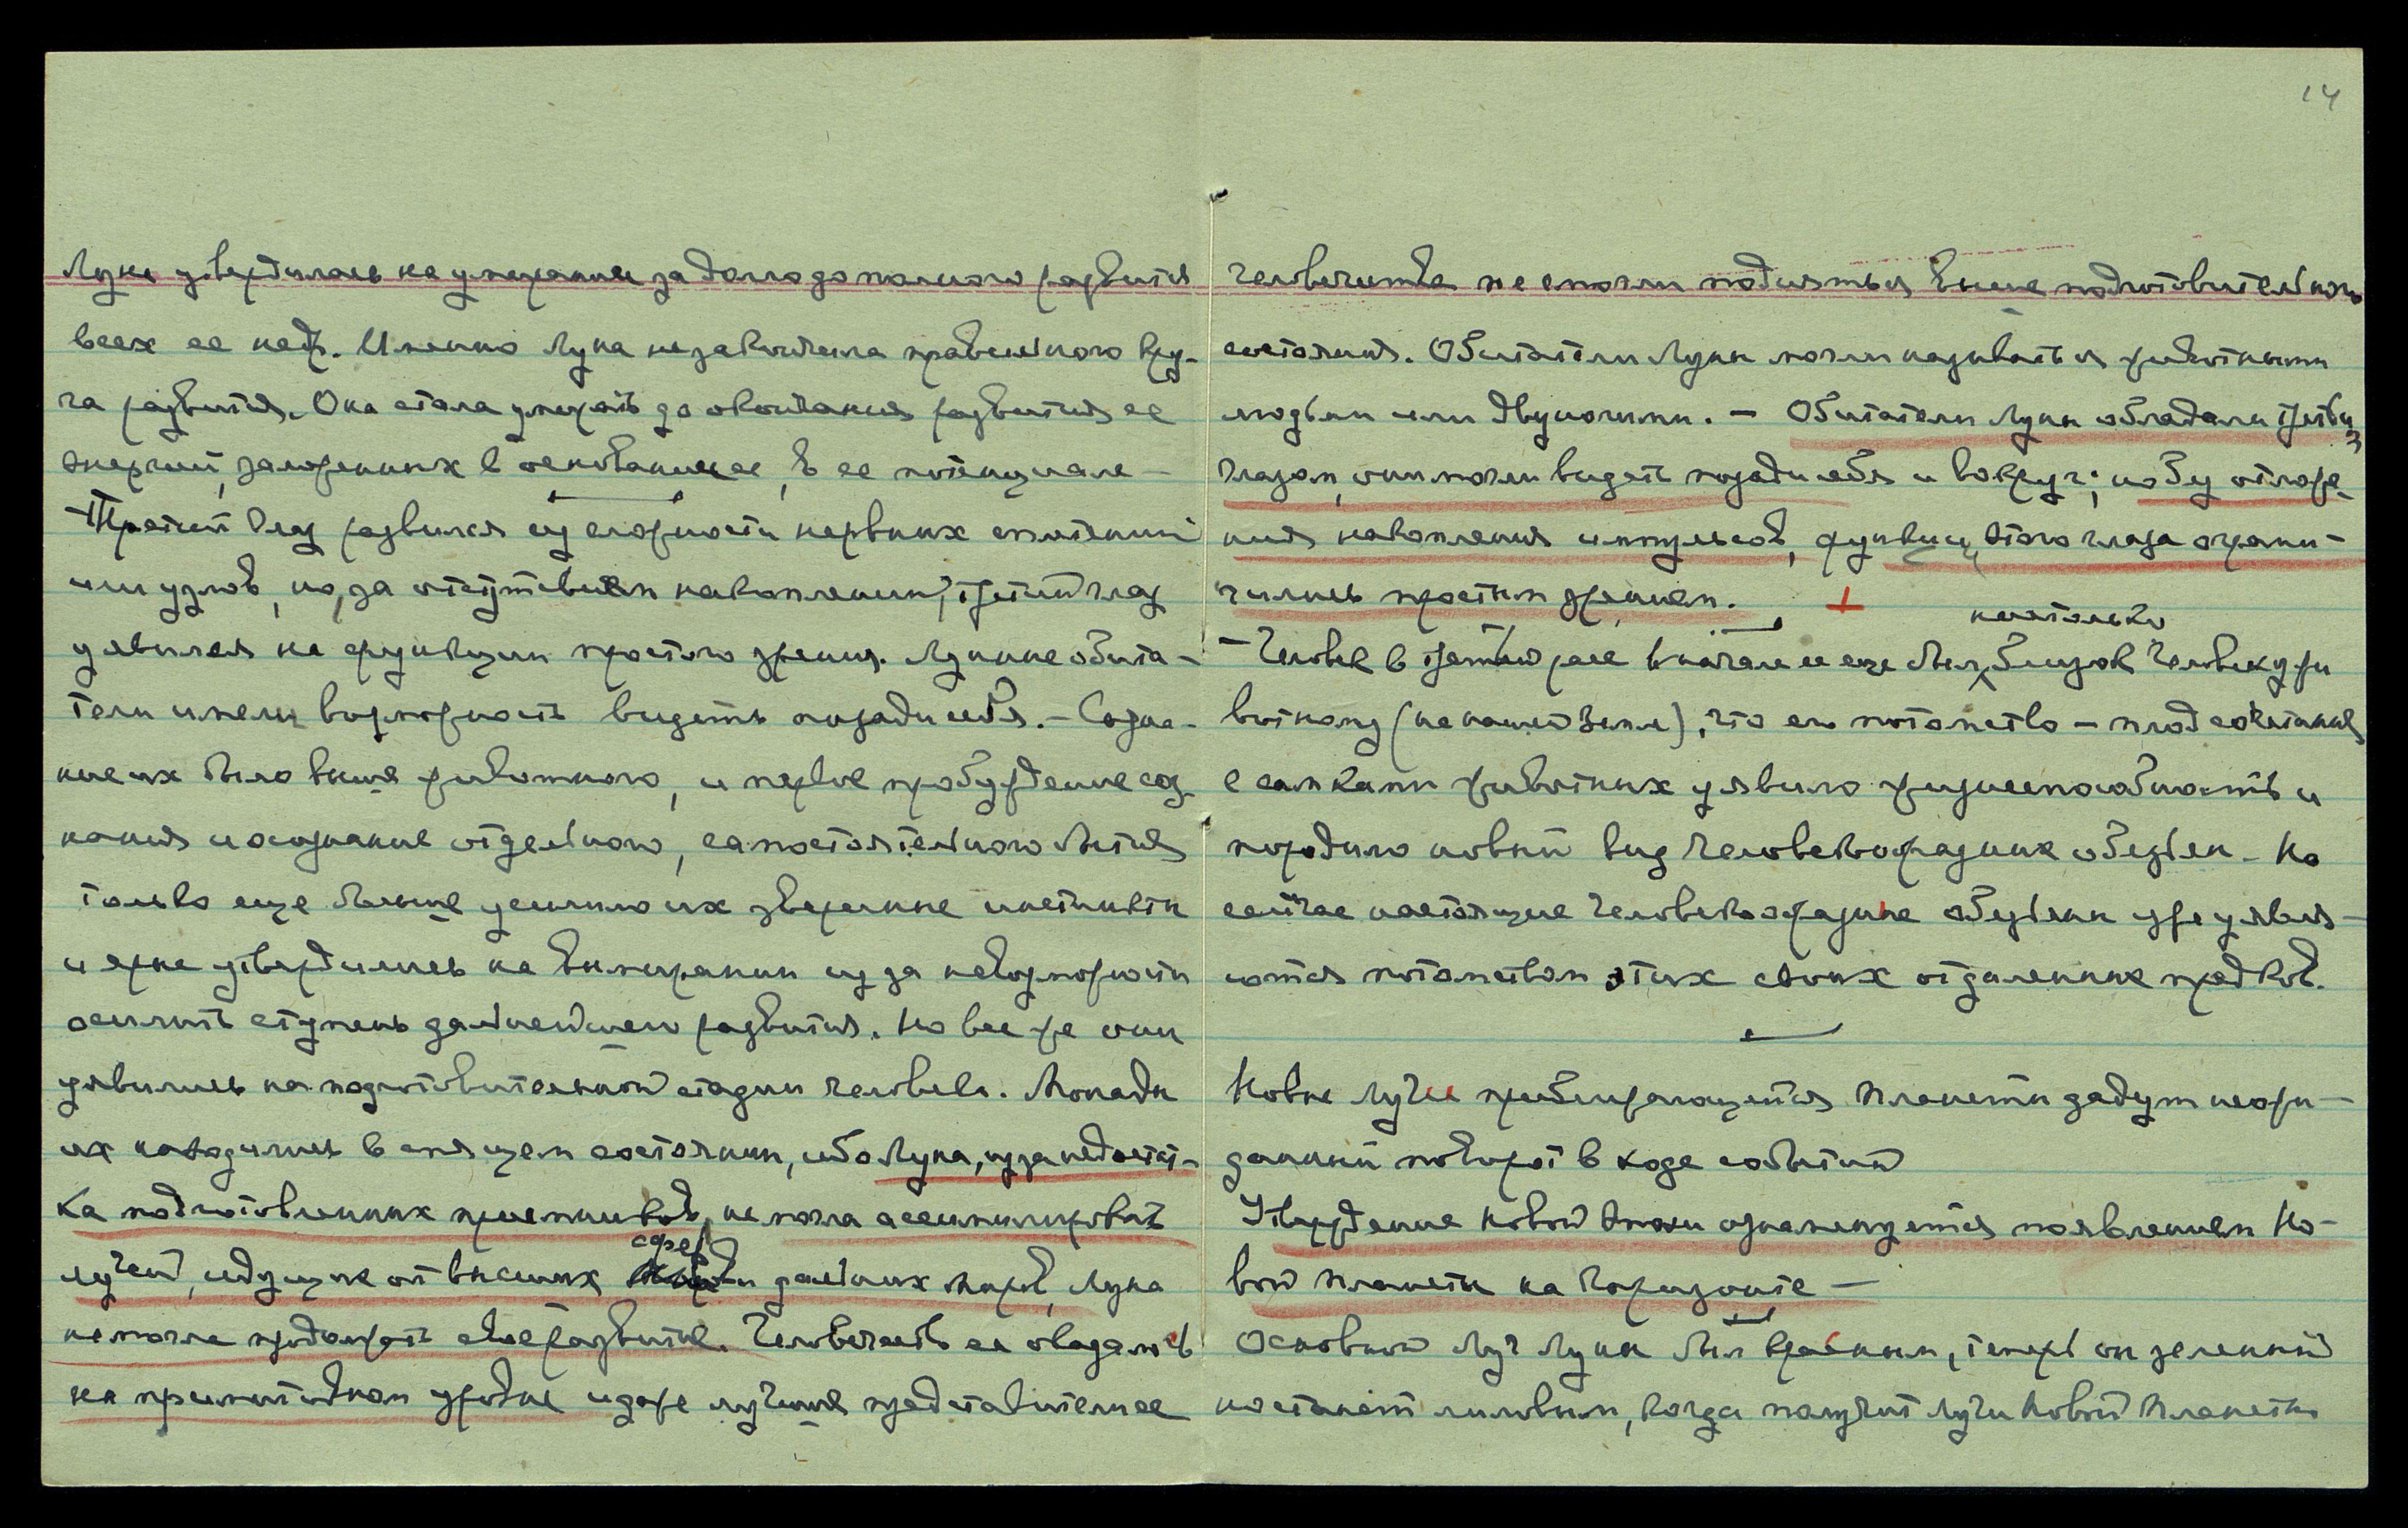 Луна утвердилась на умирание задолго до полного развития
всех ее недр. Именно Луна не закончила правильного кру-
га развития. Она стала умирать до окончания развития ее
энергий, заложенных в основание ее, в ее потенциале —
— Третий глаз развился из сложности нервных сплетений
или узлов, но, за отсутствием накоплений, третий глаз
уявился на функции простого зрения. Лунные обита-
тели имели возможность видеть позади себя. — Созна-
ние их было выше животного, и первое пробуждение соз-
нания и осознание отдельного, самостоятельного бытия
только еще больше усилило их звериные инстинкты
и ярче утвердились на вымирании из за невозможности
осилить ступень дальнейшего развития. Но все же они
уявились на подготовительной стадии человека. Монады
их находились в спящем состоянии, ибо Луна, из за недостат-
ка подготовленных приемников, не могла ассимилировать
лучей, идущих от высших сфер и дальних миров, Луна
не могла продолжать свое развитие. Человечество ее овладелось
на примитивном уровне и даже лучшие представители ее
14
человечества не смогли подняться выше подготовительного
состояния. Обитатели Луны могли называться животными
людьми или двуногими. — Обитатели Луны обладали третьим
глазом, они могли видеть позади себя и вокруг; но без отложе-
ния накопления импульсов, функции этого глаза ограни-
чились простым зрением. +
настолько
— Человек в третьей расе в начале ее еще был близок человеку жи
вотному (на нашей Земле), что его потомство — плод сочетания
с самками животных уявило жизнеспособность и
породило новый вид человекообразных обезьян. Но
сейчас настоящие человекообразные обезьяны уже уявля-
ются потомством этих своих отдаленных предков.
Новые Лучи приближающейся Планеты дадут неожи-
данный поворот в ходе событий
Утверждение Новой Эпохи ознаменуется появлением Но-
вой Планеты на горизонте —
Основной Луч Луны был красным, теперь он зеленый
но станет лиловым, когда получит Лучи Новой Планеты